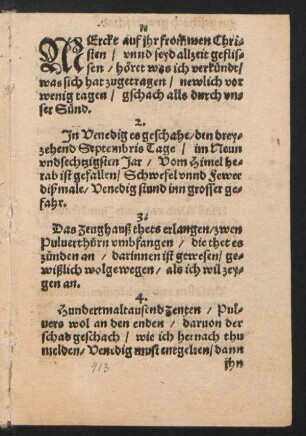 1.
MErckt auff jhr frommen Chri-
sten / vnnd seyd allzeit geflis-
sen / höret was ich verkündt /
was sich hat zugetragen / newlich vor
wenig tagen / gschach alls durch vn-
ser Sünd.
2.
In Venedig es geschahe / den drey-
zehend Septembris Tage / im Neun
vndsechtzigsten Jar / Vom Himel he-
rab ist gefallen / Schwefel vnnd Fewer
dißmale / Venedig stund inn grosser ge-
fahr.
3.
Das Zeughauß thets erlangen / zwen
Puluerthürn vmbfangen / die thet es
zünden an / darinnen ist gewesen / ge-
wißlich wolgewegen / als ich wil zey-
gen an.
4.
Hundertmaltausend Zenten / Pul-
uers wol an den enden / daruon der
schad geschach / wie ich hernach thu
melden / Venedig must entgelten / dann
jhn
413